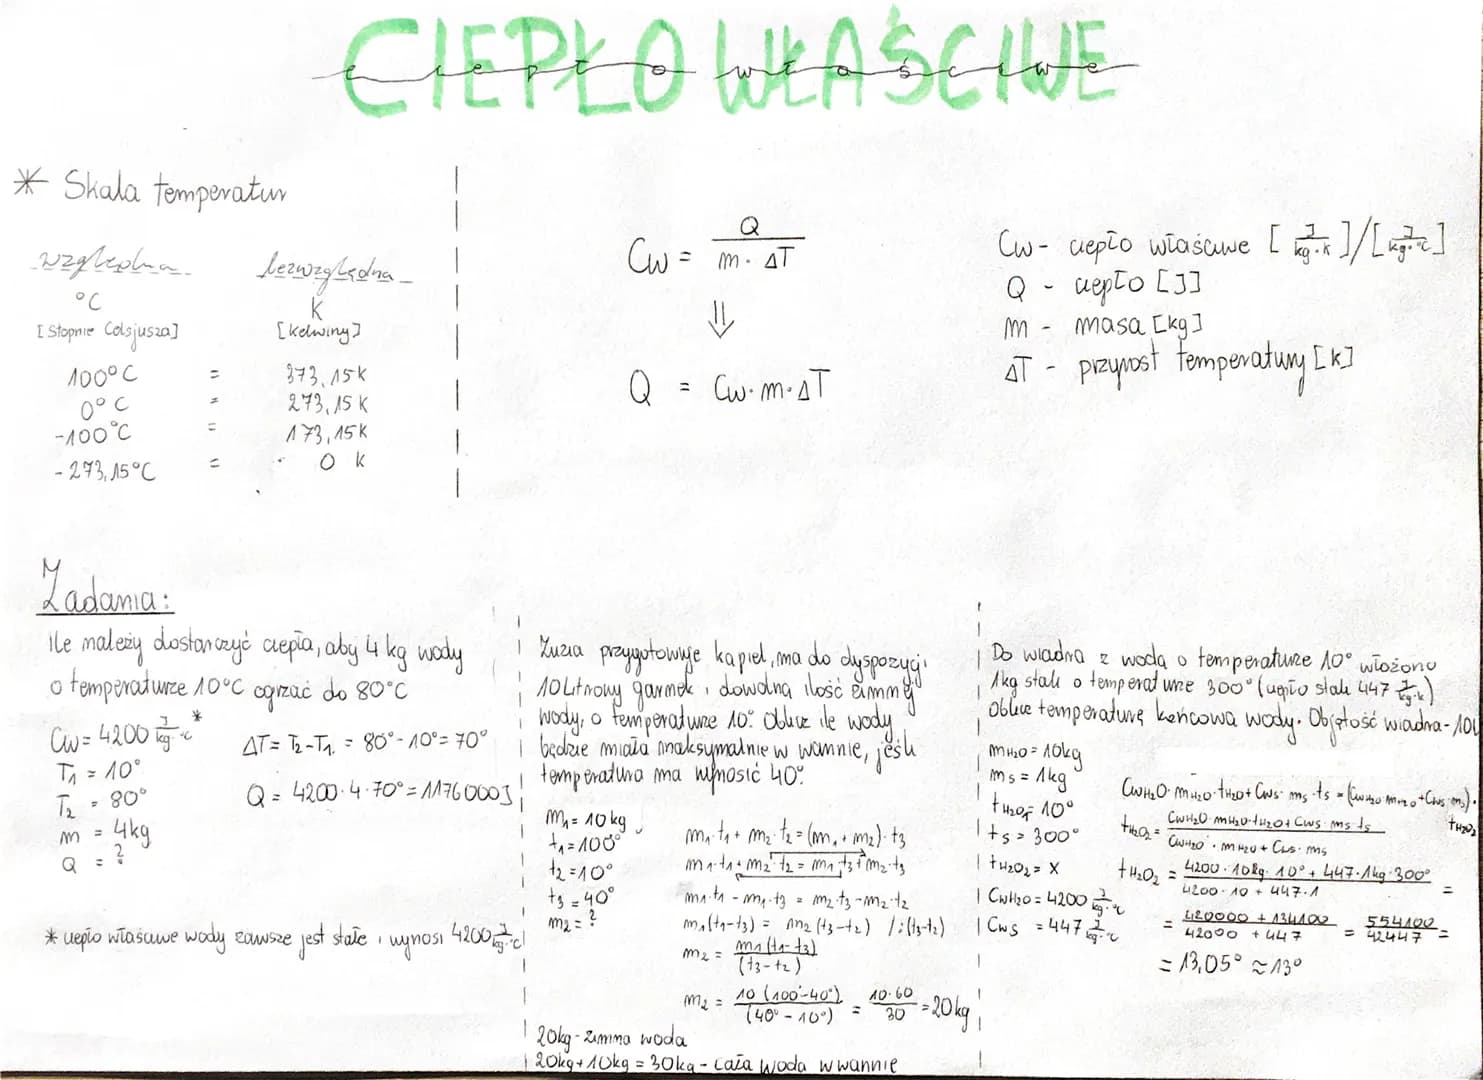 CIEPŁO WŁAŚCIWE
ciepło właściwe
* Skala temperatur
względna bezwzględna
°C K
[Stopnie Celsjusza] [Kelwiny]
100°C = 373,15K
0°C = 273,15K
-100°C = 173,15K
-273,15°C = 0 K
Cw = Q / m · ΔT
⇓
Q = Cw · m · ΔT
Cw - ciepło właściwe [J/kg·K]/[J/kg·°C]
Q - ciepło [J]
m - masa [kg]
ΔT - przyrost temperatury [K]
Zadania:
Ile należy dostarczyć ciepła, aby 4 kg wody
o temperaturze 10°C ogrzać do 80°C
Cw = 4200 J/kg·°C *
T₁ = 10°
T₂ = 80°
m = 4kg
Q = ?
ΔT = T₂-T₁ = 80°-10° = 70°
Q = 4200·4·70° = 1176000J
* ciepło właściwe wody zawsze jest stałe i wynosi 4200 J/kg·°C
Zuzia przygotowuje kąpiel, ma do dyspozycji
10Litrowy garnek i dowolną ilość zimnej
wody, o temperaturze 10°. Oblicz ile wody
będzie miała maksymalnie w wannie, jeśli
temperatura ma wynosić 40°.
m₁ = 10kg
t₁ = 100°
t₂ = 10°
t₃ = 40°
m₂ = ?
m₁·t₁ + m₂·t₂ = (m₁+m₂)·t₃
m₁·t₁ + m₂·t₂ = m₁·t₃ + m₂·t₃
m₁·t₁ - m₁·t₃ = m₂·t₃ - m₂·t₂
m₁(t₁-t₃) = m₂(t₃-t₂) /:(t₃-t₂)
m₂ = m₁(t₁-t₃) / (t₃-t₂)
m₂ = 10(100°-40°) / (40°-10°) = 10·60 / 30 = 20kg
20kg - zimna woda
20kg + 10kg = 30kg - cała woda w wannie
Do wiadra z wodą o temperaturze 10° włożono
1kg stali o temperaturze 300° (ciepło stali 447 J/kg·K)
Oblicz temperaturę końcową wody. Objętość wiadra - 10L
mH₂O = 10kg
ms = 1kg
tH₂O = 10°
ts = 300°
tH₂O₂ = X
CwH₂O = 4200 J/kg·°C
Cws = 447 J/kg·°C
CwH₂O·mH₂O·tH₂O + Cws·ms·ts = (CwH₂O·mH₂O + Cws·ms)·tH₂O₂
tH₂O₂ = CwH₂O·mH₂O·tH₂O + Cws·ms·ts / CwH₂O·mH₂O + Cws·ms
tH₂O₂ = 4200·10kg·10° + 447·1kg·300° / 4200·10 + 447·1 =
= 420000 + 134100 / 42000 + 447 = 554100 / 42447 =
= 13,05° ≈ 13°